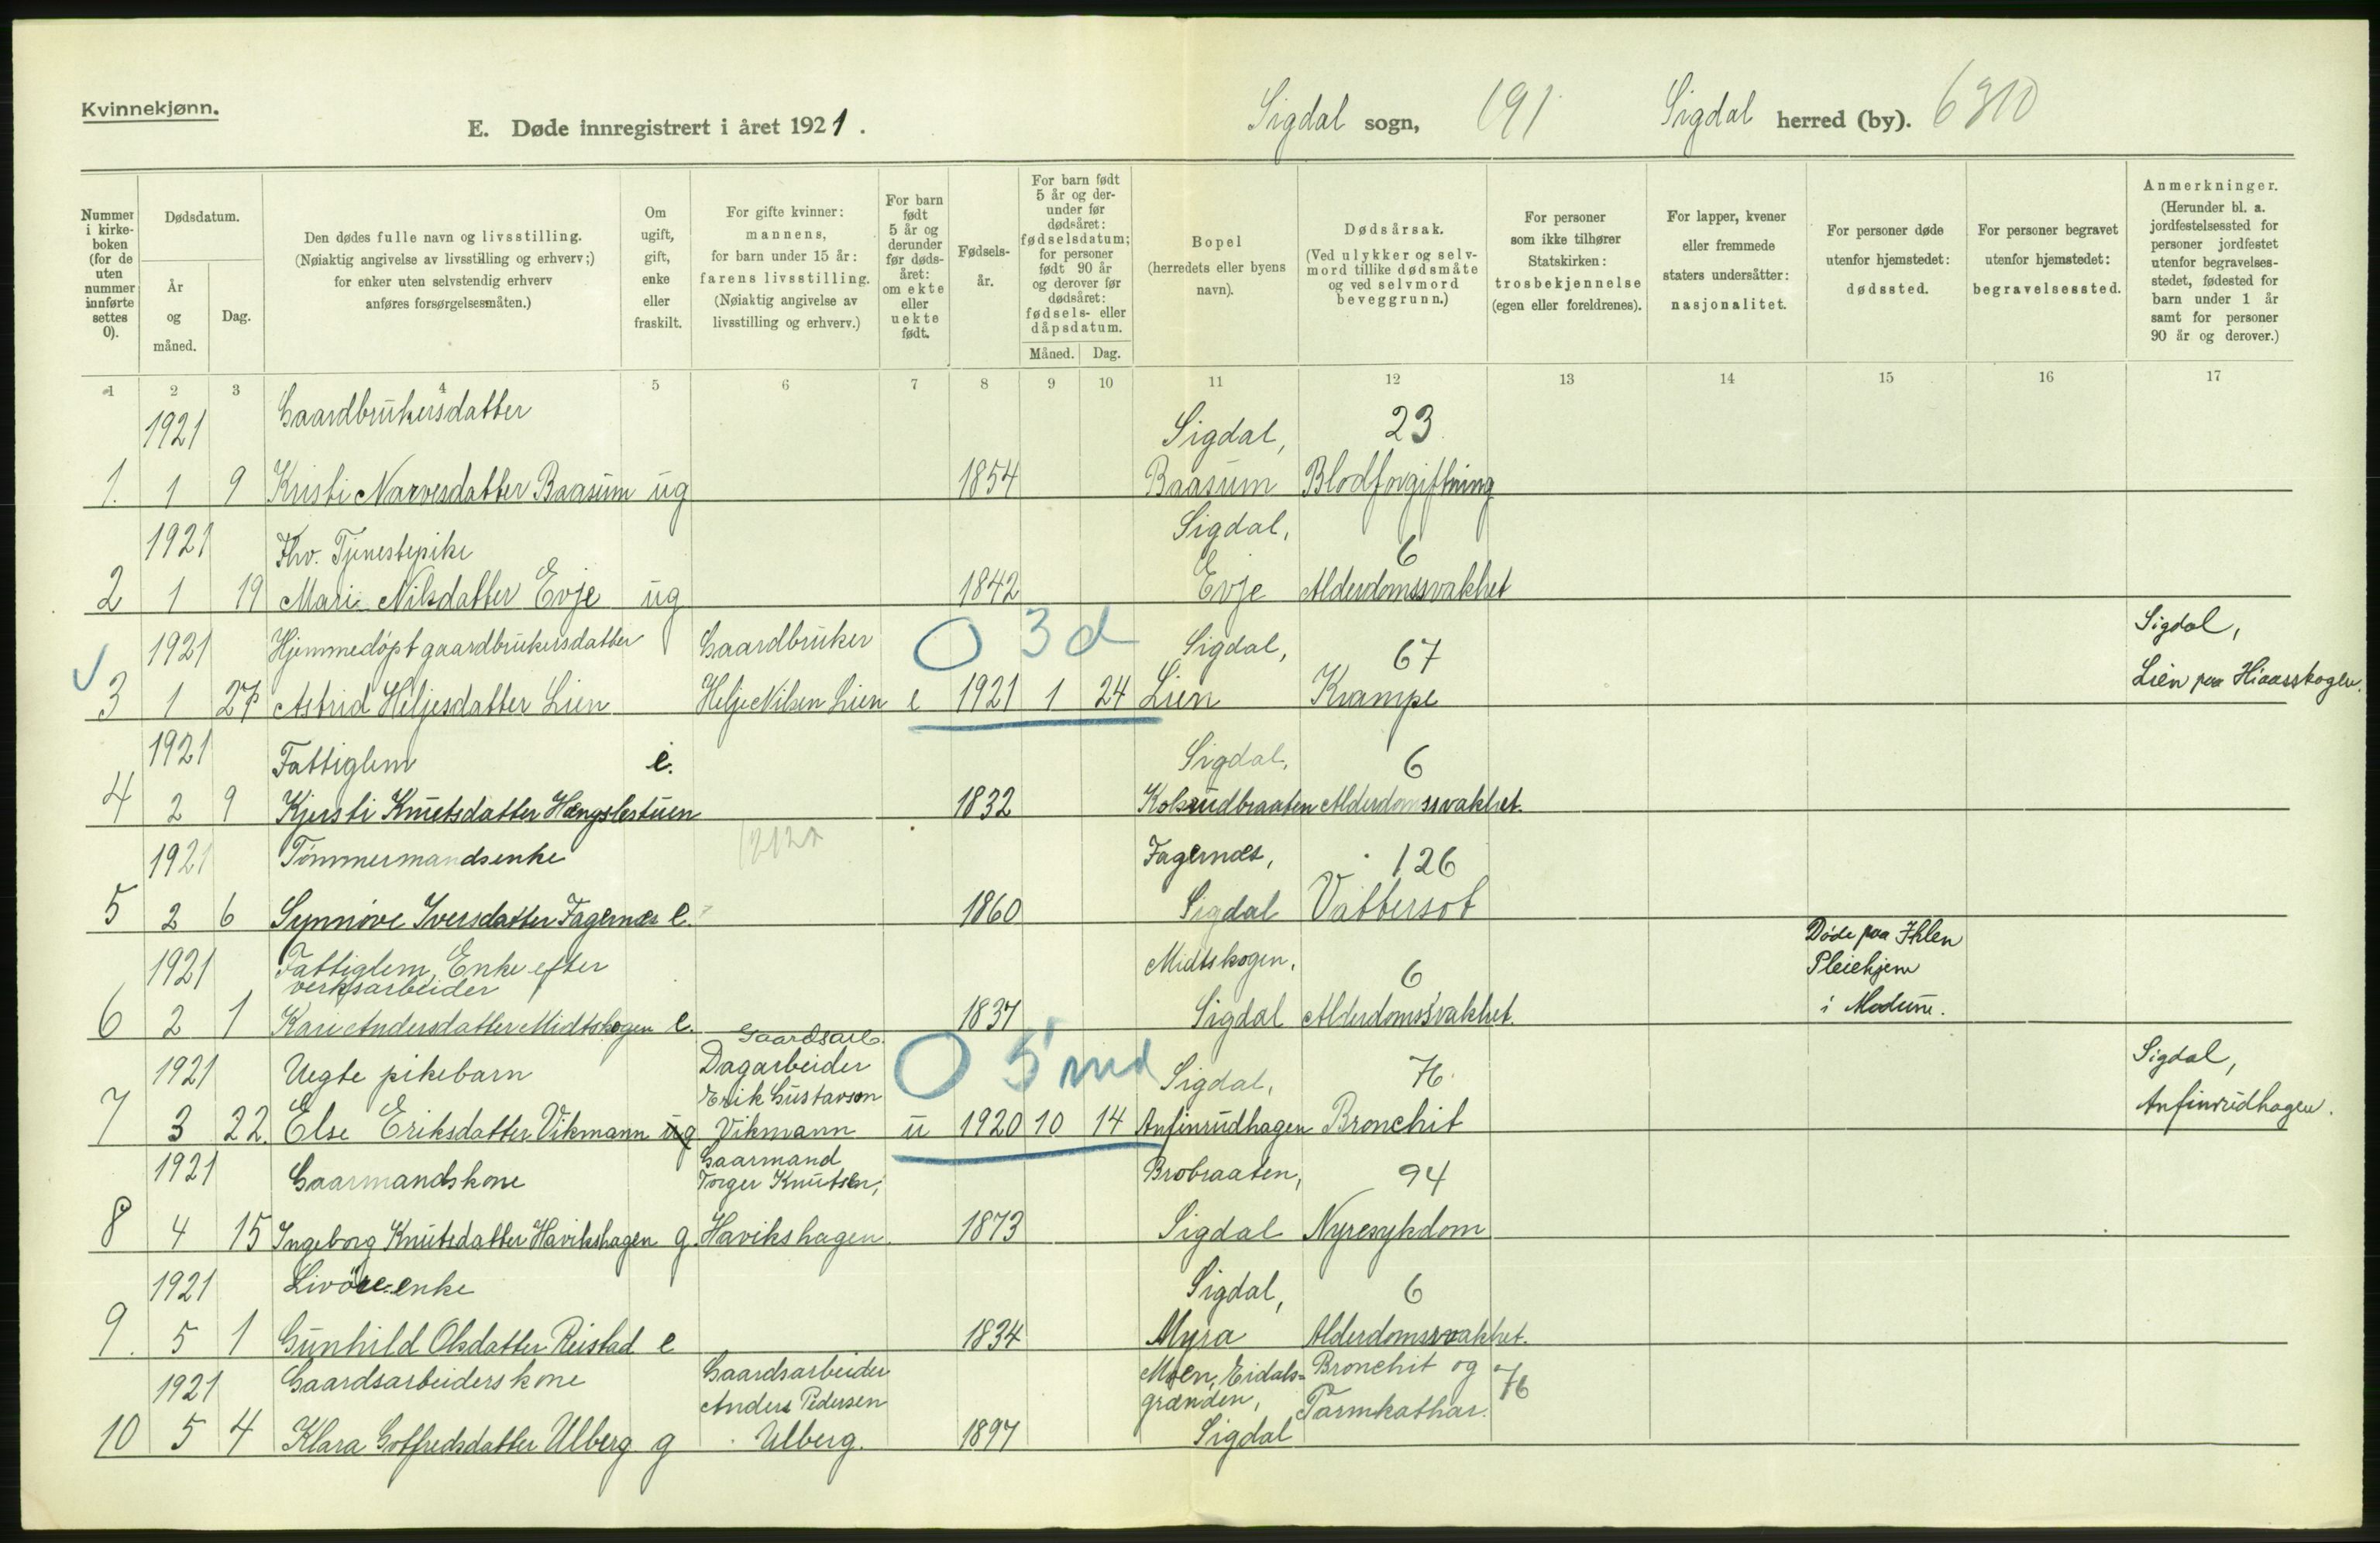 Kvinnekjønn.
E. Døde innregistrert i året 1921.
Sigdal sogn, 191 Sigdal herred (by). 6310
Nummer i kirke- boken (for de uten nummer innførte settes 0).
Dødsdatum.
År og måned.
Dag.
Den dødes fulle navn og livsstilling.
(Nøiaktig angivelse av livsstilling og erhverv;)
for enker uten selvstendig erhverv
anføres forsørgelsesmåten.)
Om ugift, gift, enke eller fraskilt.
For gifte kvinner:
mannens,
for barn under 15 år:
farens livsstilling.
(Nøiaktig angivelse av
livsstilling og erhverv.)
For barn født 5 år og derunder før døds- året: om ekte eller uekte født.
Fødsels- år.
For barn født 5 år og der- under før dødsåret: fødselsdatum; for personer født 90 år og derover før dødsåret: fødsels- eller dåpsdatum.
Måned. Dag.
Bopel
(herredets eller byens
navn).
Dødsårsak.
(Ved ulykker og selv-
mord tillike dødsmåte
og ved selvmord
beveggrunn.)
For personer
som ikke tilhører
Statskirken:
trosbekjennelse
(egen eller foreldrenes).
For lapper, kvener
eller fremmede
staters undersåtter:
nasjonalitet.
For personer døde
utenfor hjemstedet:
dødssted.
For personer begravet
utenfor hjemstedet:
begravelsessted.
Anmerkninger.
(Herunder bl. a.
jordfestelsessted for
personer jordfestet
utenfor begravelses-
stedet, fødested for
barn under 1 år
samt for personer
90 år og derover.)
1 2 3 4 5 6 7 8 9 10 11 12 13 14 15 16 17
1921 Gaardbrukersdatter Sigdal, 23
1. 1 9 Kristi Narvesdatter Baasum ug 1854 Baasum Blodforgiftning
1921 Fhv. Tjenestepike Sigdal, 6
2 1 19 Mari Nilsdatter Evje ug 1842 Evje Alderdomssvakhet
1921 Hjemmedøpt gaardbrukersdatter Gaardbruker 0 3 d Sigdal, 67 Sigdal,
3 1 27 Astrid Heljesdatter Lien Helje Nilsen Lien e 1921 1 24 Lien Krampe Lien paa Hiaasskogen.
1921 Fattiglem e. Sigdal, 6
4 2 9 Kjersti Knutsdatter Hængslestuen 1832 Kolsrudbraaten Alderdomssvakhet.
1921 Tømmermandsenke Fagernæs, 126
5 2 6 Synnøve Iversdatter Fagernæs e. 1860 Sigdal Vattersot
1921 Fattiglem, Enke efter
verksarbeider Midtskogen, 6 Døde paa Ihlen
Pleiehjem
6 2 1 Kari Andersdatter Midtskogen e. 1837 Sigdal Alderdomssvakhet. i Modum.
Gaardsarb.
1921 Uegte pikebarn Dagarbeider 0 5 md Sigdal, 76 Sigdal,
Erik Gustavson
7 3 22. Else Eriksdatter Vikmann ug Vikmann u 1920 10 14 Anfinrudhagen Bronchit Anfinrudhagen.
1921 Gaarmandskone Gaarmand
Torger Knutsen, Brobraaten, 94
8 4 15 Ingeborg Knutsdatter Havikshagen g Havikshagen 1873 Sigdal Nyresykdom
1921 Livøre-enke Sigdal, 6
9. 5 1 Gunhild Olsdatter Reistad e 1834 Myra Alderdomssvakhet.
1921 Gaardsarbeiderskone Gaardsarbeider Moen, Eidals- Bronchit og 76
Anders Pedersen grænden, Tarmkathar.
10 5 4 Klara Gotfredsdatter Ulberg g Ulberg. 1897 Sigdal